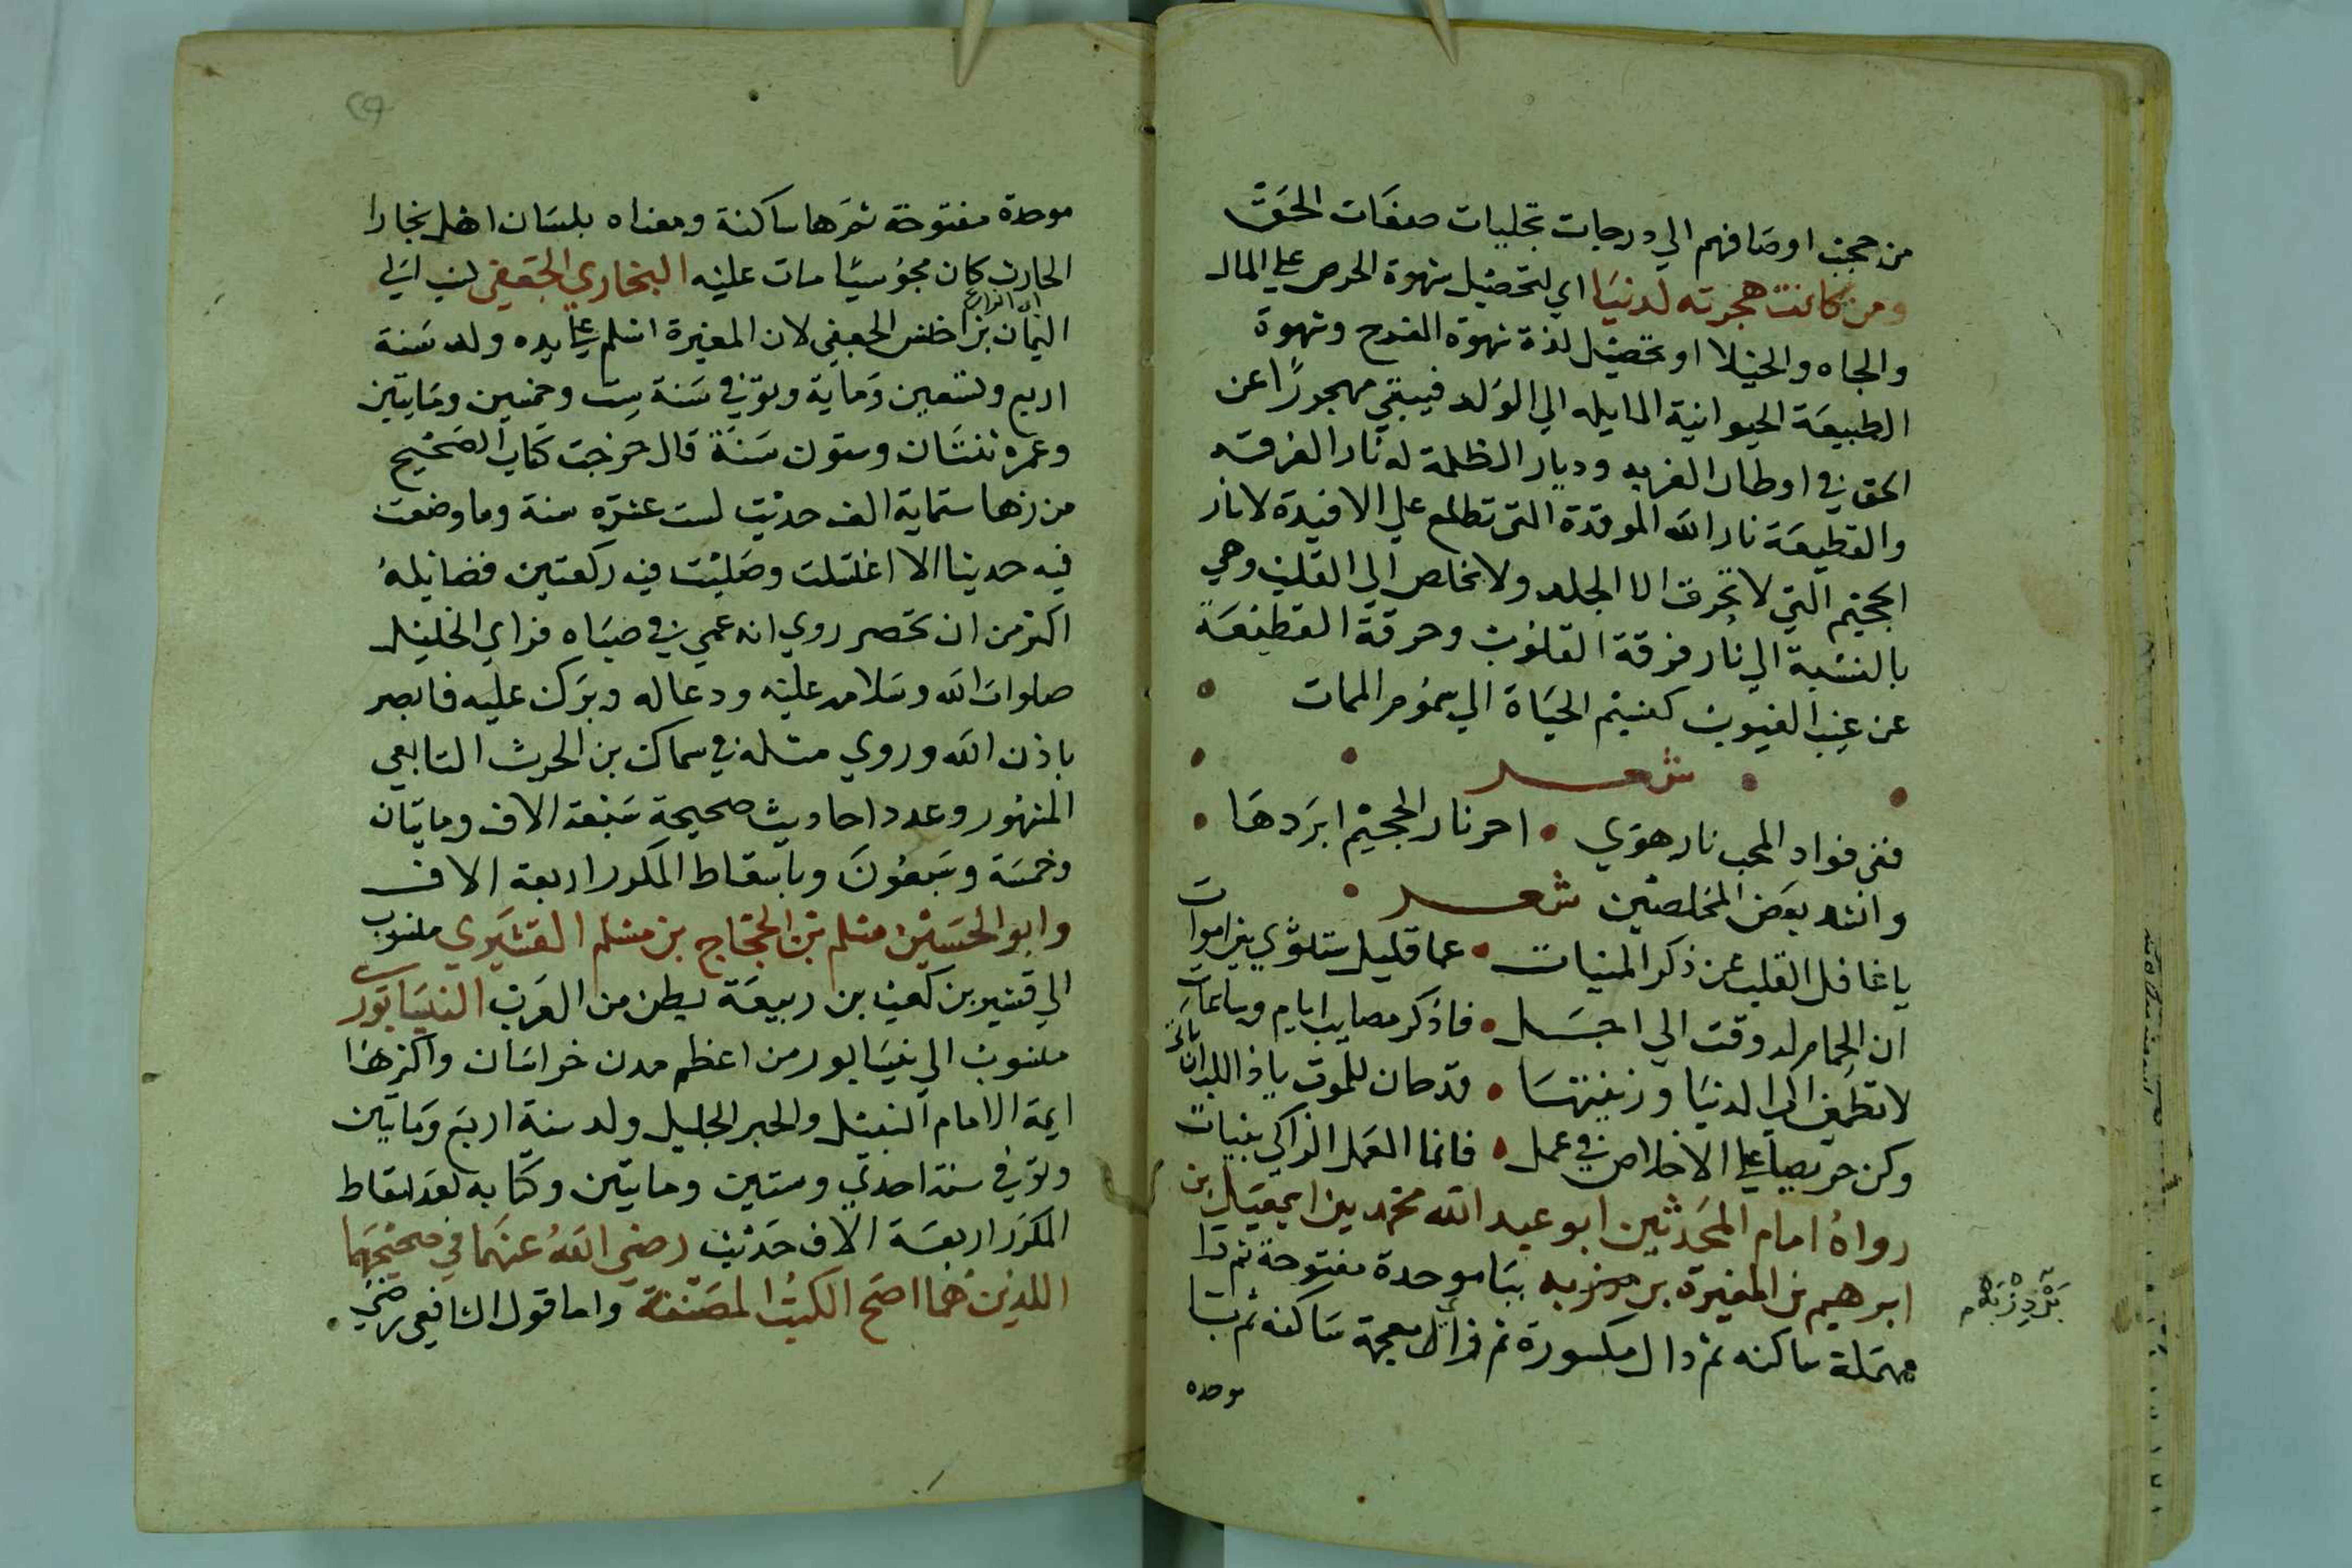 من حجب اوصافهم الي درجات تجليات صفات الحق
ومن كانت هجرته لدنيا اي لتحصيل شهوة الحرص علي المال
والجاه والخيلا او تحصيل لذة شهوة الفرج وشهوة
الطبيعة الحيوانية المايله الي الولد فيبقي مهجورا عن
الحق في اوطان الغربه وديار الظلمة له نار الفرقه
والقطيعة نار الله الموقدة التي تطلع علي الافيدة لا نار
الجحيم التي لا تحرق الا الجلد ولا تخلص الي القلب وهي
بالنسبة الي نار فرقة القلوب وحرقة القطيعة
عن غيب الغيوب كنسيم الحياة الي سموم الممات
شعر
ففي فواد المحب نار هوي • احر نار الجحيم ابردها •
وانشد بعض المخلصين شعر
يا غافل القلب عن ذكر المنيات • عما قليل ستثوي بين اموات
ان الحمام له وقت الي اجل • فاذكر مصايب ايام وساعات
لا تطمين الي الدنيا وزينتها • قد حان للموت ياذا اللب ان ياتي
وكن حريصا علي الاخلاص في عمل • فانما العمل الزاكي بنيات
رواه امام المحدثين ابو عبد الله محمد بن اسمعيل بن
ابرهيم بن المغيرة بن بردزبه ببا موحدة مفتوحة ثم را
مهملة ساكنه ثم دال مكسورة ثم زاي معجمة ساكنه ثم با
بَرْدِزْبَهْ
موحده
موحدة مفتوحة ثم ها ساكنة ومعناه بلسان اهل بخارا
الحارث كان مجوسيا مات عليه البخاري الجعفي نسب الي
اليمان بن اخنس الجعفي لان المغيرة اسلم علي يده ولد سنة
اربع وتسعين ومايه وتوفي سنة ست وخمسين ومايتين
وعمره ثنتان وستون سنة قال خرجت كتاب الصحيح
من زها ستماية الف حديث لست عشره سنة وما وضعت
فيه حديثا الا اغتسلت وصليت فيه ركعتين فضايله
اكثر من ان تحصر روي انه عمي في صباه فراي الخليل
صلوات الله وسلامه عليه ودعا له وبرك عليه فابصر
باذن الله وروي مثله في سماك بن الحرث التابعي
المشهور وعدد احاديث صحيحة سبعة الاف ومايتان
وخمسة وسبعون وباسقاط المكرر اربعة الاف
وابو الحسين مسلم بن الحجاج بن مسلم القشيري منسوب
الي قشير بن كعب بن ربيعة بطن من العرب النيسابوري
منسوب الي نيسابور من اعظم مدن خراسان واكثرها
ايمة الامام النبيل والحبر الجليل ولد سنة اربع ومايتين
وتوفي سنة احدي وستين ومايتين وكتابه بعد اسقاط
المكرر اربعة الاف حديث رضي الله عنهما في صحيحيهما
اللذين هما اصح الكتب المصنفة واما قول الشافعي رضي